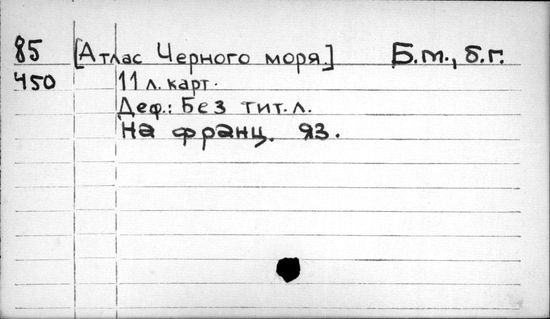 85 [Атлас Черного моря] Б.м., б.г.
450 11 л. карт.
Деф.: Без тит. л.
На франц. яз.